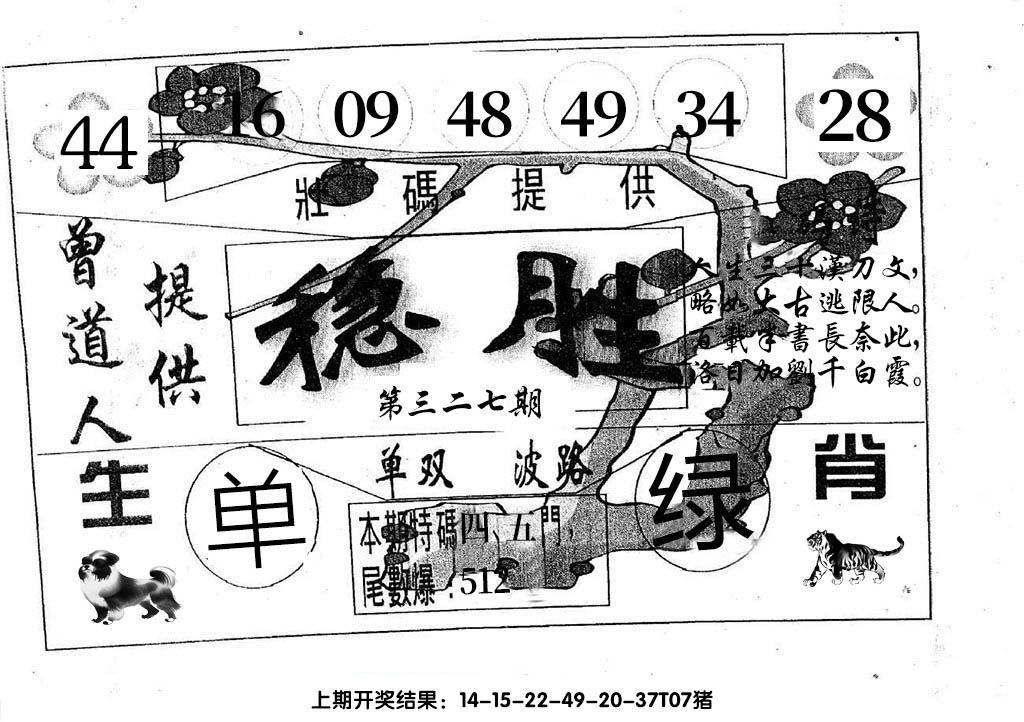 44 16 09 48 49 34 28
壯碼提供
曾道人
提供
稳胜
第三二七期
人生三十漢刀文，
略如太古逃限人。
百載半書長奈此，
洛日加劉千白霞。
单双 波路
生肖
单 绿
本期特碼四、五門，
尾數爆：512
上期开奖结果：14-15-22-49-20-37T07猪